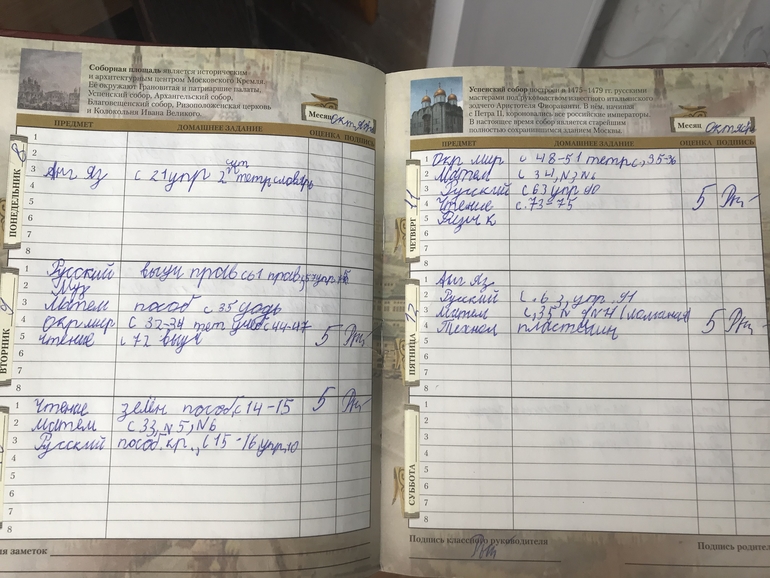 Соборная площадь является историческим
и архитектурным центром Московского Кремля.
Её окружают Грановитая и патриаршие палаты,
Успенский собор, Архангельский собор,
Благовещенский собор, Ризоположенская церковь
и Колокольня Ивана Великого.
Месяц Октябрь
ПРЕДМЕТ ДОМАШНЕЕ ЗАДАНИЕ ОЦЕНКА ПОДПИСЬ
ПОНЕДЕЛЬНИК 8
1
2
3 Анг Яз с 21 упр 2 тетр словарь
4
5
6
7
8
ВТОРНИК 9
1 Русский выуч прав с61 прав,
2 Муз
3 Матем пособ с 35
4 Окр мир с 32-34 тет с 44-47
5 Чтение с 72 выуч 5
6
7
8
1 Чтение зелён пособ, с 14-15 5
2 Матем с 33, N5, N6
3 Русский пособ. кр., с 15-16, упр. 10
4
5
6
7
8
я заметок
Успенский собор построен в 1475–1479 гг. русскими
мастерами под руководством известного итальянского
зодчего Аристотеля Фиораванти. В нём, начиная
с Петра II, короновались все российские императоры.
В настоящее время собор является старейшим
полностью сохранившимся зданием Москвы.
Месяц Октябрь
ПРЕДМЕТ ДОМАШНЕЕ ЗАДАНИЕ ОЦЕНКА ПОДПИСЬ
ЧЕТВЕРГ 11
1 Окр мир с 48-51 тетр с, 35-36
2 Матем с 34, N3, N6
3 Русский с 63 упр 90
4 Чтение с. 73-75 5
5 Физич к
6
7
8
ПЯТНИЦА 12
1 Анг Яз.
2 Русский с. 63, упр. 91
3 Матем с, 35 N
4 Технол пластелин 5
5
6
7
8
СУББОТА
1
2
3
4
5
6
7
8
Подпись классного руководителя
Подпись родител